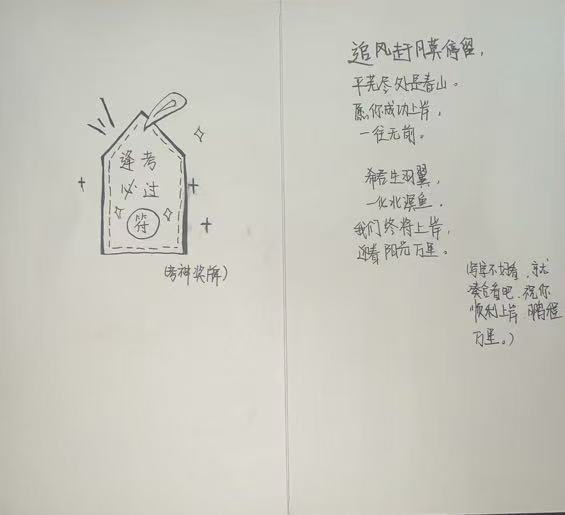 逢考
必过
符
(考神奖牌)
追风赶月莫停留,
平芜尽处是春山。
愿你成功上岸,
一往无前。
希君生羽翼,
一化北溟鱼。
我们终将上岸,
迎着阳光万里。
(写字不好看,就
凑合看吧,祝你
顺利上岸,鹏程
万里。)